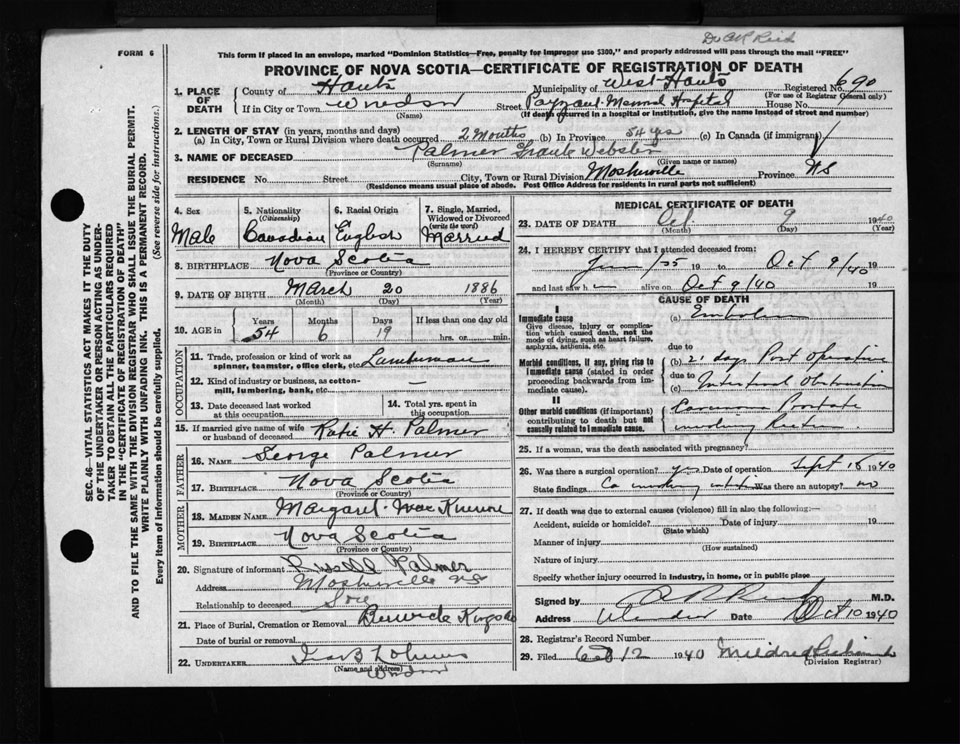 Dr A R Reid
FORM 6
This form if placed in an envelope, marked "Dominion Statistics—Free, penalty for improper use $300," and properly addressed will pass through the mail "FREE"
PROVINCE OF NOVA SCOTIA—CERTIFICATE OF REGISTRATION OF DEATH
SEC. 46—VITAL STATISTICS ACT MAKES IT THE DUTY
OF THE UNDERTAKER OR PERSON ACTING AS UNDER-
TAKER TO OBTAIN ALL THE PARTICULARS REQUIRED
IN THE "CERTIFICATE OF REGISTRATION OF DEATH"
AND TO FILE THE SAME WITH THE DIVISION REGISTRAR WHO SHALL ISSUE THE BURIAL PERMIT.
WRITE PLAINLY WITH UNFADING INK. THIS IS A PERMANENT RECORD.
Every item of information should be carefully supplied. (See reverse side for instructions.)
1. PLACE OF DEATH County of Hants Municipality of West Hants Registered No. 690
(For use of Registrar General only)
If in City or Town Windsor Street Payzant Memorial Hospital House No.
(Name) (If death occurred in a hospital or institution, give the name instead of street and number)
2. LENGTH OF STAY (in years, months and days)
(a) In City, Town or Rural Division where death occurred 2 Months (b) In Province 54 yrs (c) In Canada (if immigrant)
3. NAME OF DECEASED Palmer Webster
(Surname) (Given name or names)
RESIDENCE No. Street City, Town or Rural Division Mosherville Province NS
(Residence means usual place of abode. Post Office Address for residents in rural parts not sufficient)
4. Sex Male
5. Nationality (Citizenship) Canadian
6. Racial Origin English
7. Single, Married, Widowed or Divorced (write the word) Married
8. BIRTHPLACE Nova Scotia
(Province or Country)
9. DATE OF BIRTH March 20 1886
(Month) (Day) (Year)
10. AGE in Years 54 Months 6 Days 19 If less than one day old hrs. or min.
OCCUPATION
11. Trade, profession or kind of work as spinner, teamster, office clerk, etc. Lumberman
12. Kind of industry or business, as cotton-mill, lumbering, bank, etc. —
13. Date deceased last worked at this occupation
14. Total yrs. spent in this occupation
15. If married give name of wife or husband of deceased Katie H. Palmer
FATHER
16. NAME George Palmer
17. BIRTHPLACE Nova Scotia
(Province or Country)
MOTHER
18. MAIDEN NAME Margaret
19. BIRTHPLACE Nova Scotia
(Province or Country)
20. Signature of informant Russell Palmer
Address Mosherville NS
Relationship to deceased Son
21. Place of Burial, Cremation or Removal Berwick Kings Co
Date of burial or removal
22. UNDERTAKER
(Name and address) Windsor
MEDICAL CERTIFICATE OF DEATH
23. DATE OF DEATH Oct 9 1940
(Month) (Day) (Year)
24. I HEREBY CERTIFY that I attended deceased from:
19 to Oct 9/40 19
and last saw h alive on Oct 9/40 19
CAUSE OF DEATH
I
Immediate cause (a) Embolism
Give disease, injury or complication which caused death, not the mode of dying, such as heart failure, asphyxia, asthenia, etc.
due to
Morbid conditions, if any, giving rise to immediate cause (stated in order proceeding backwards from immediate cause).
(b) 21 days Post operative
due to
(c) Intestinal Obstruction
II
Other morbid conditions (if important) contributing to death but not causally related to immediate cause.
Carcinoma Prostate
involving Rectum
25. If a woman, was the death associated with pregnancy?
26. Was there a surgical operation? yes Date of operation Sept 18 1940
State findings Ca involving Was there an autopsy? no
27. If death was due to external causes (violence) fill in also the following:—
Accident, suicide or homicide? Date of injury 19
(State which)
Manner of injury
(How sustained)
Nature of injury
Specify whether injury occurred in industry, in home, or in public place
Signed by A R Reid M.D.
Address Windsor Date Oct 10 1940
28. Registrar's Record Number
29. Filed Oct 12 1940 Mildred
(Division Registrar)